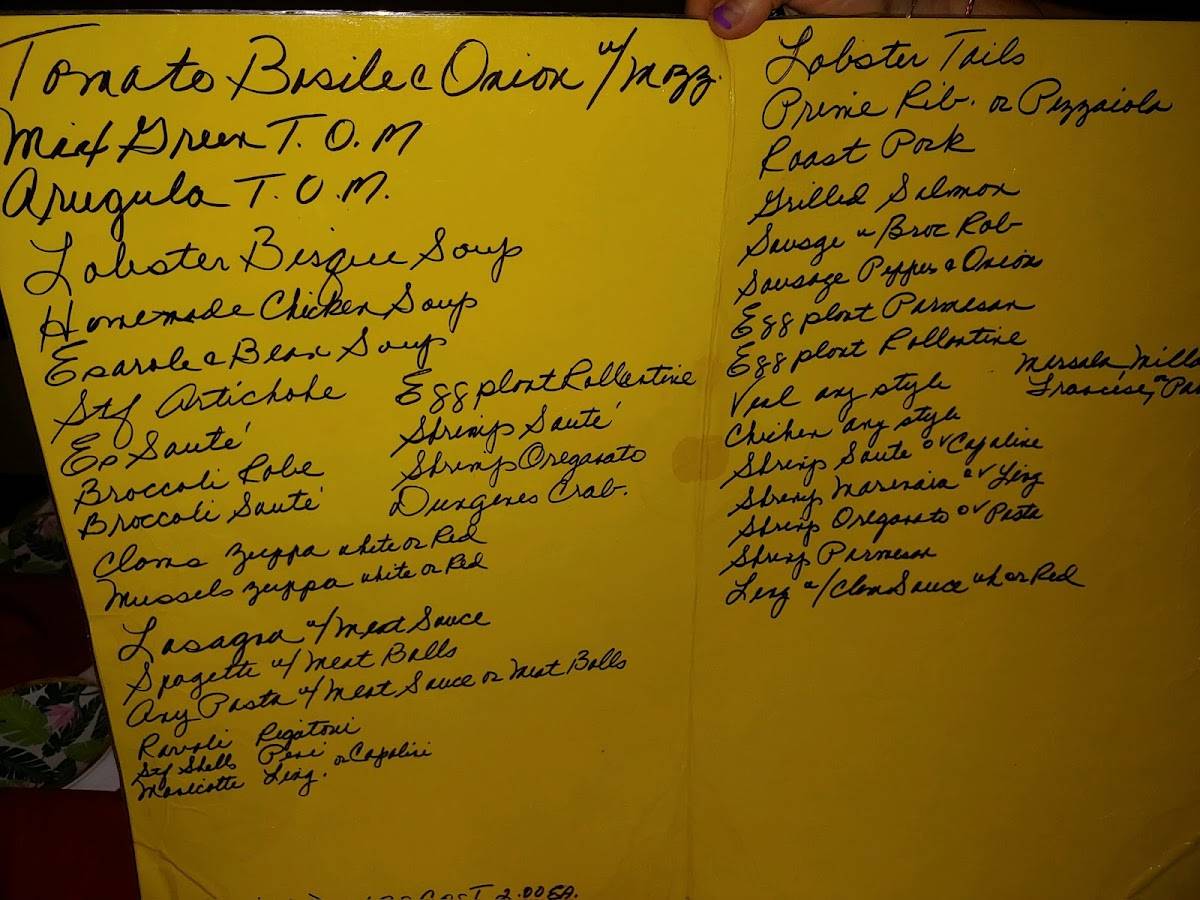 Tomato Basile & Onion w/Mozz.
Mix Green T.O.M
Arugula T.O.M.
Lobster Bisque Soup
Homemade Chicken Soup
Esarole & Bean Soup
Stf Artichoke
Es Sauté
Broccoli Robe
Broccoli Sauté
Eggplant Rollentine
Shrimp Sauté
Shrimp Oreganato
Dungenes Crab.
Clams Zuppa white or Red
Mussels Zuppa white or Red
Lasagna w/Meat Sauce
Spagette w/Meat Balls
Any Pasta w/Meat Sauce or Meat Balls
Ravoli Rigatoni
Stf Shells Peni or Capalini
Manicotte Ling.
COST 2.00 EA.
Lobster Tails
Prime Rib. or Pizzaiola
Roast Pork
Grilled Salmon
Sausge w/Broc Rob
Sausage Pepper & Onion
Eggplant Parmesan
Eggplant Rollantine
Veal any style
Chicken any style
Marsala, Milla
Francese, or Pa
Shrimp Saute ov Capaline
Shrimp Marinaia ov Ling
Shrimp Oreganato ov Pasta
Shrimp Parmesan
Ling w/Clam Sauce wh or Red